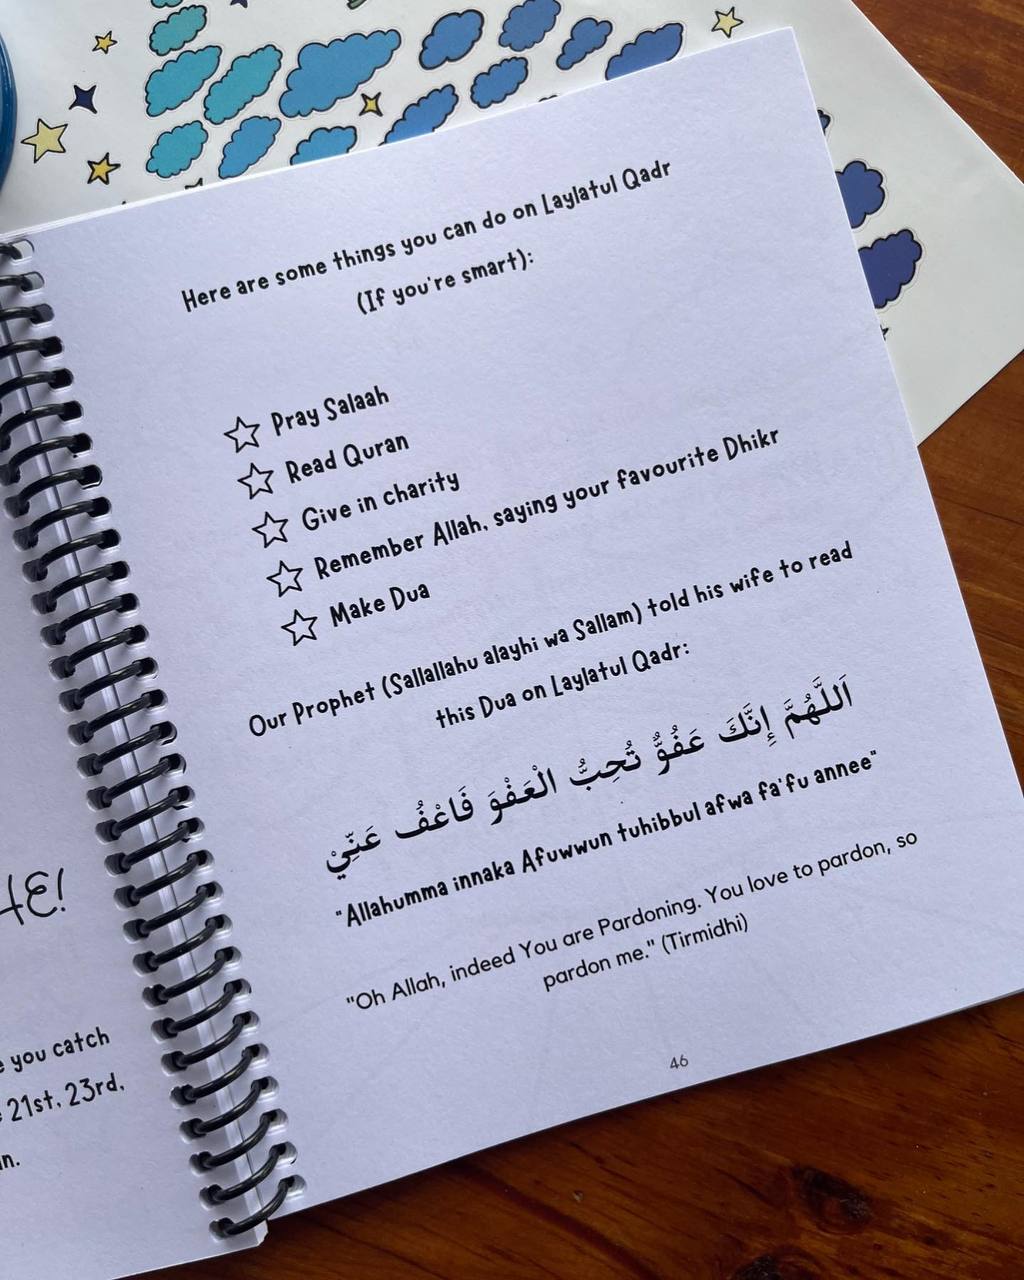 HE!
e you catch
21st, 23rd,
n.
Here are some things you can do on Laylatul Qadr
(If you're smart):
Pray Salaah
Read Quran
Give in charity
Remember Allah, saying your favourite Dhikr
Make Dua
Our Prophet (Sallallahu alayhi wa Sallam) told his wife to read
this Dua on Laylatul Qadr:
اَللَّهُمَّ إِنَّكَ عَفُوٌّ تُحِبُّ الْعَفْوَ فَاعْفُ عَنِّيْ
"Allahumma innaka Afuwwun tuhibbul afwa fa'fu annee"
"Oh Allah, indeed You are Pardoning. You love to pardon, so
pardon me." (Tirmidhi)
46